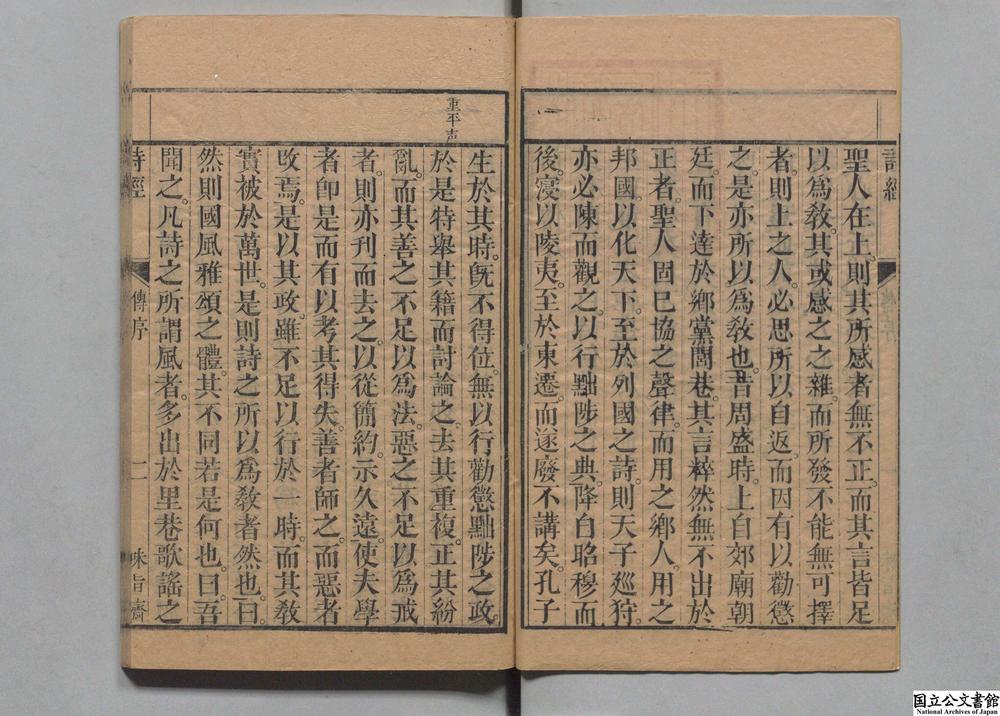 詩經
聖人在上。則其所感者無不正。而其言皆足
以爲敎。其或感之之雜。而所發不能無可擇
者。則上之人。必思所以自返。而因有以勸懲
之。是亦所以爲敎也。昔周盛時。上自郊廟朝
廷。而下達於鄉黨閭巷。其言粹然無不出於
正者。聖人固巳協之聲律。而用之鄉人。用之
邦國。以化天下。至於列國之詩。則天子廵狩。
亦必陳而觀之。以行黜陟之典。降自昭穆而
後。寖以陵夷。至於東遷。而遂廢不講矣。孔子
重平声
生於其時。旣不得位。無以行勸懲黜陟之政。
於是特舉其籍而討論之。去其重複。正其紛
亂。而其善之不足以爲法。惡之不足以爲戒
者。則亦刊而去之。以從簡約。示久遠。使夫學
者卽是而有以考其得失。善者師之。而惡者
攺焉。是以其政。雖不足以行於一時。而其敎
實被於萬世。是則詩之所以爲敎者然也。曰。
然則國風雅頌之體。其不同若是何也。曰。吾
聞之。凡詩之所謂風者。多出於里巷歌謠之
詩經 傳序 二 味旨齋
国立公文書館
National Archives of Japan